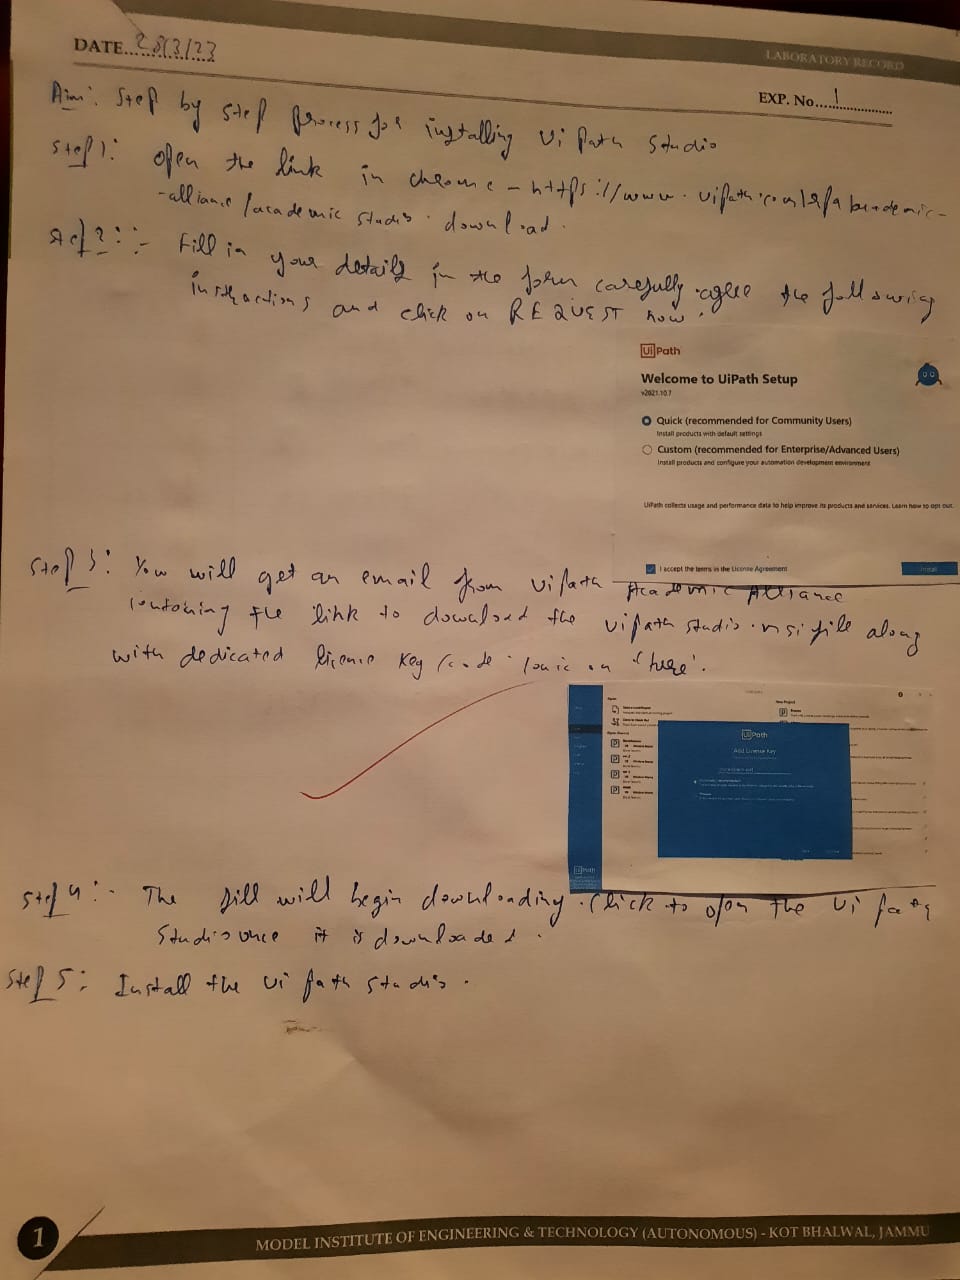 LABORATORY RECORD
DATE 28/3/23
EXP. No. 1
Aim: Step by Step process for installing Ui Path Studio
Step 1: open the link in chrome - https://www.uipath.com/
-alliance/academic studio. download.
Step 2:- Fill in your details in the form carefully agree the following
instructions and click on REQUEST now.
Ui Path
Welcome to UiPath Setup
v2021.10.7
Quick (recommended for Community Users)
Install products with default settings
Custom (recommended for Enterprise/Advanced Users)
Install products and configure your automation development environment
UiPath collects usage and performance data to help improve its products and services. Learn how to opt out.
I accept the terms in the License Agreement
Install
Step 3: You will get an email from uipath Academic Alliance
contoining the link to download the uipath studio .msi file along
with dedicated license key /code. on 'here'.
Ui Path
Add License Key
Ui Path
Step 4:- The fill will begin downloading. Click to open the Ui path
Studio once it is downloaded.
Step 5: Install the ui path studio.
1
MODEL INSTITUTE OF ENGINEERING & TECHNOLOGY (AUTONOMOUS) - KOT BHALWAL, JAMMU